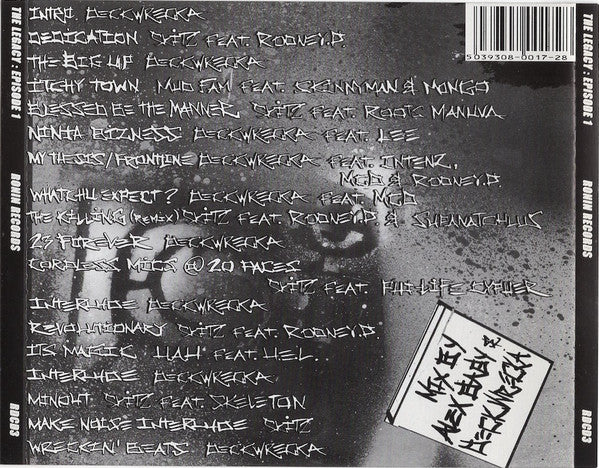 INTRO. DECKWRECKA
DEDICATION SKITZ FEAT. RODNEY.P.
THE BIG UP DECKWRECKA
ITCHY TOWN MUD FAM FEAT. SKINNYMAN & MONGO
BLESSED BE THE MANNER SKITZ FEAT. ROOTS MANUVA
NINJA BIZNESS DECKWRECKA FEAT. LEE
MY THESIS/FRONTLINE DECKWRECKA FEAT. INTENZ,
MCD & RODNEY.P.
WHATCHU EXPECT? DECKWRECKA FEAT. MCD
THE KILLING (REMIX) SKITZ FEAT. RODNEY.P. &
23 FOREVER DECKWRECKA
CORDLESS MICS @ 20 PACES
SKITZ FEAT. PHI-LIFE CYPHER
INTERLUDE DECKWRECKA
REVOLUTIONARY SKITZ FEAT. RODNEY.P.
ITS MAGIK FEAT. HEL..
INTERLUDE DECKWRECKA
SKITZ FEAT. SKELETON
MAKE NOISE INTERLUDE SKITZ
WRECKIN' BEATS DECKWRECKA
5039308-0017-28
MIX BY
& DECKWRECKA
THE LEGACY : EPISODE 1
RONIN RECORDS
RDCD3
THE LEGACY : EPISODE 1
RONIN RECORDS
RDCD3